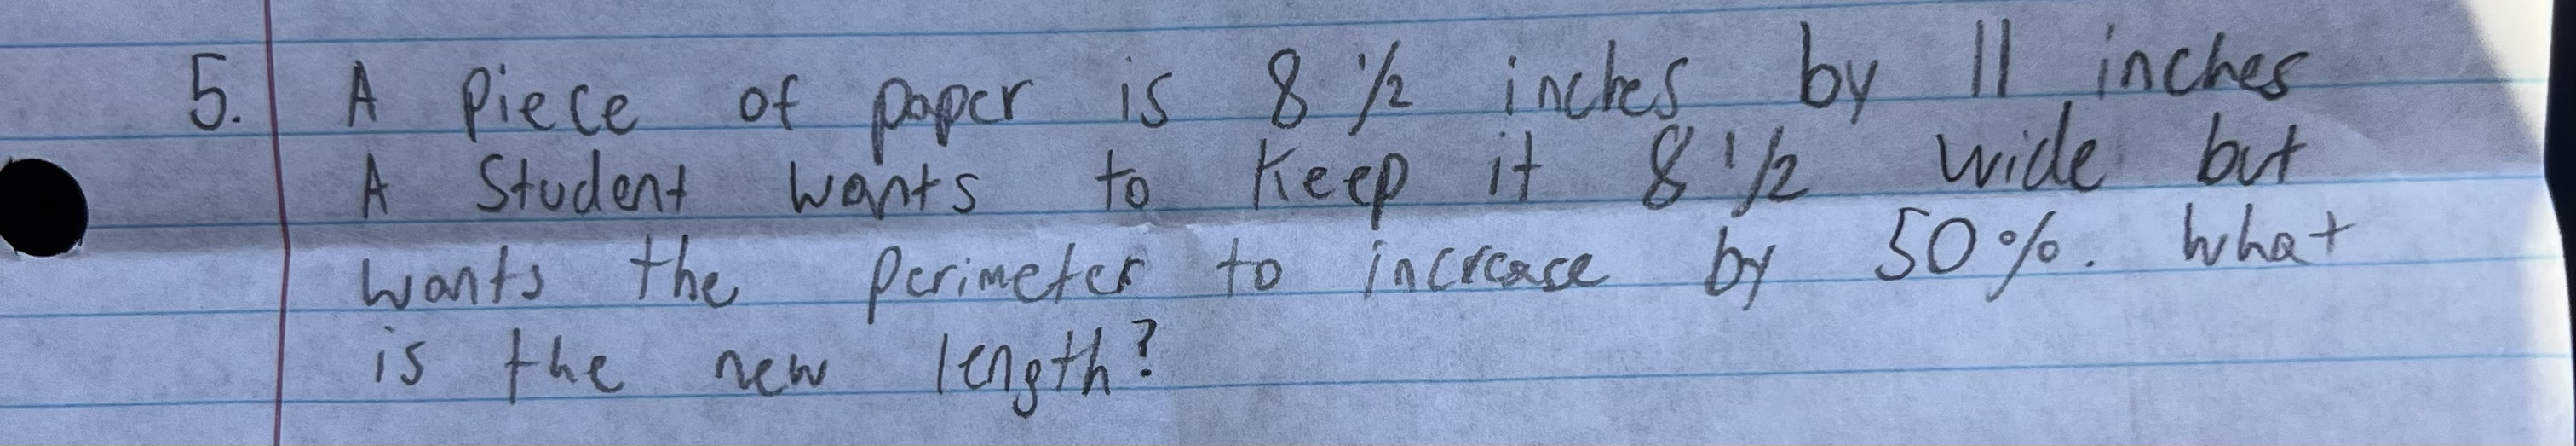 5. A piece of paper is 8 1/2 inches by 11 inches
A student wants to keep it 8 1/2 wide but
wants the perimeter to increase by 50%. What
is the new length?